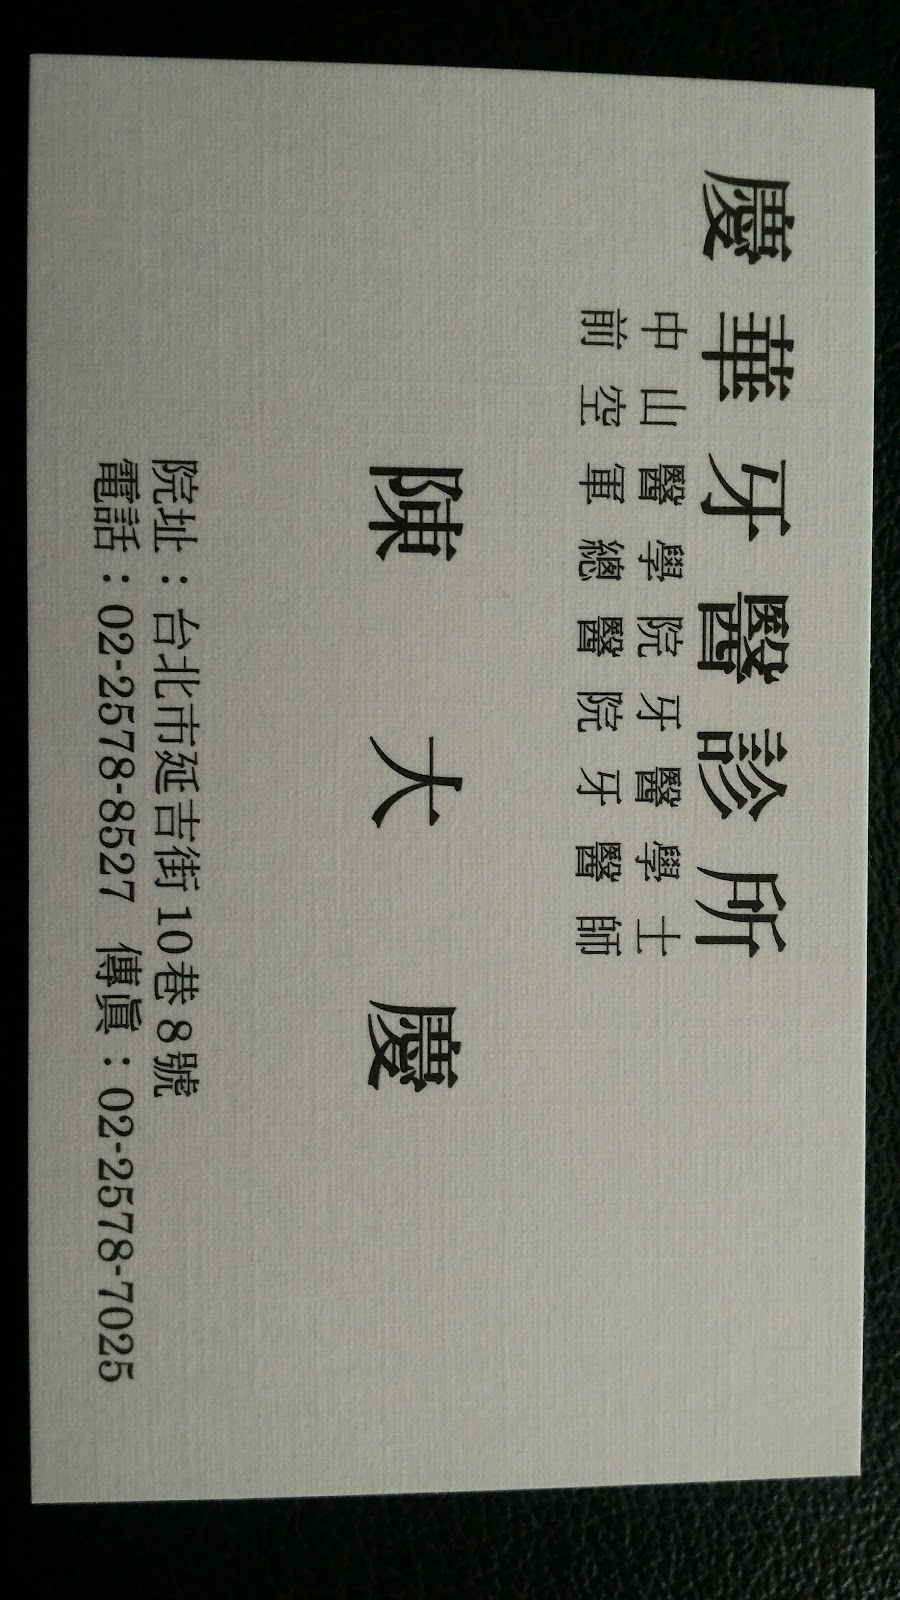 慶華牙醫診所
中山醫學院牙醫學士
前空軍總醫院牙醫師
陳大慶
院址：台北市延吉街10巷8號
電話：02-2578-8527 傳眞：02-2578-7025